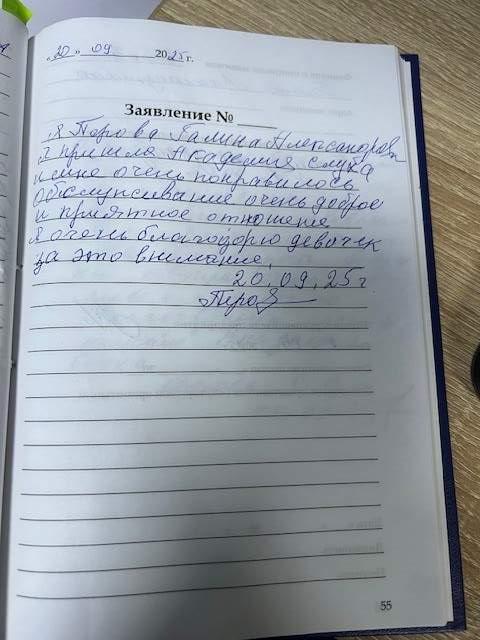 „20" 09 2025 г.
Заявление № ____
Я Перова Галина Александровн
Я пришла Академия слуха
и мне очень понравилось
обслуживание очень доброе
и приятное отношение
Я очень благодорю девочек
за это внимание.
20.09.25 г
Перов
55